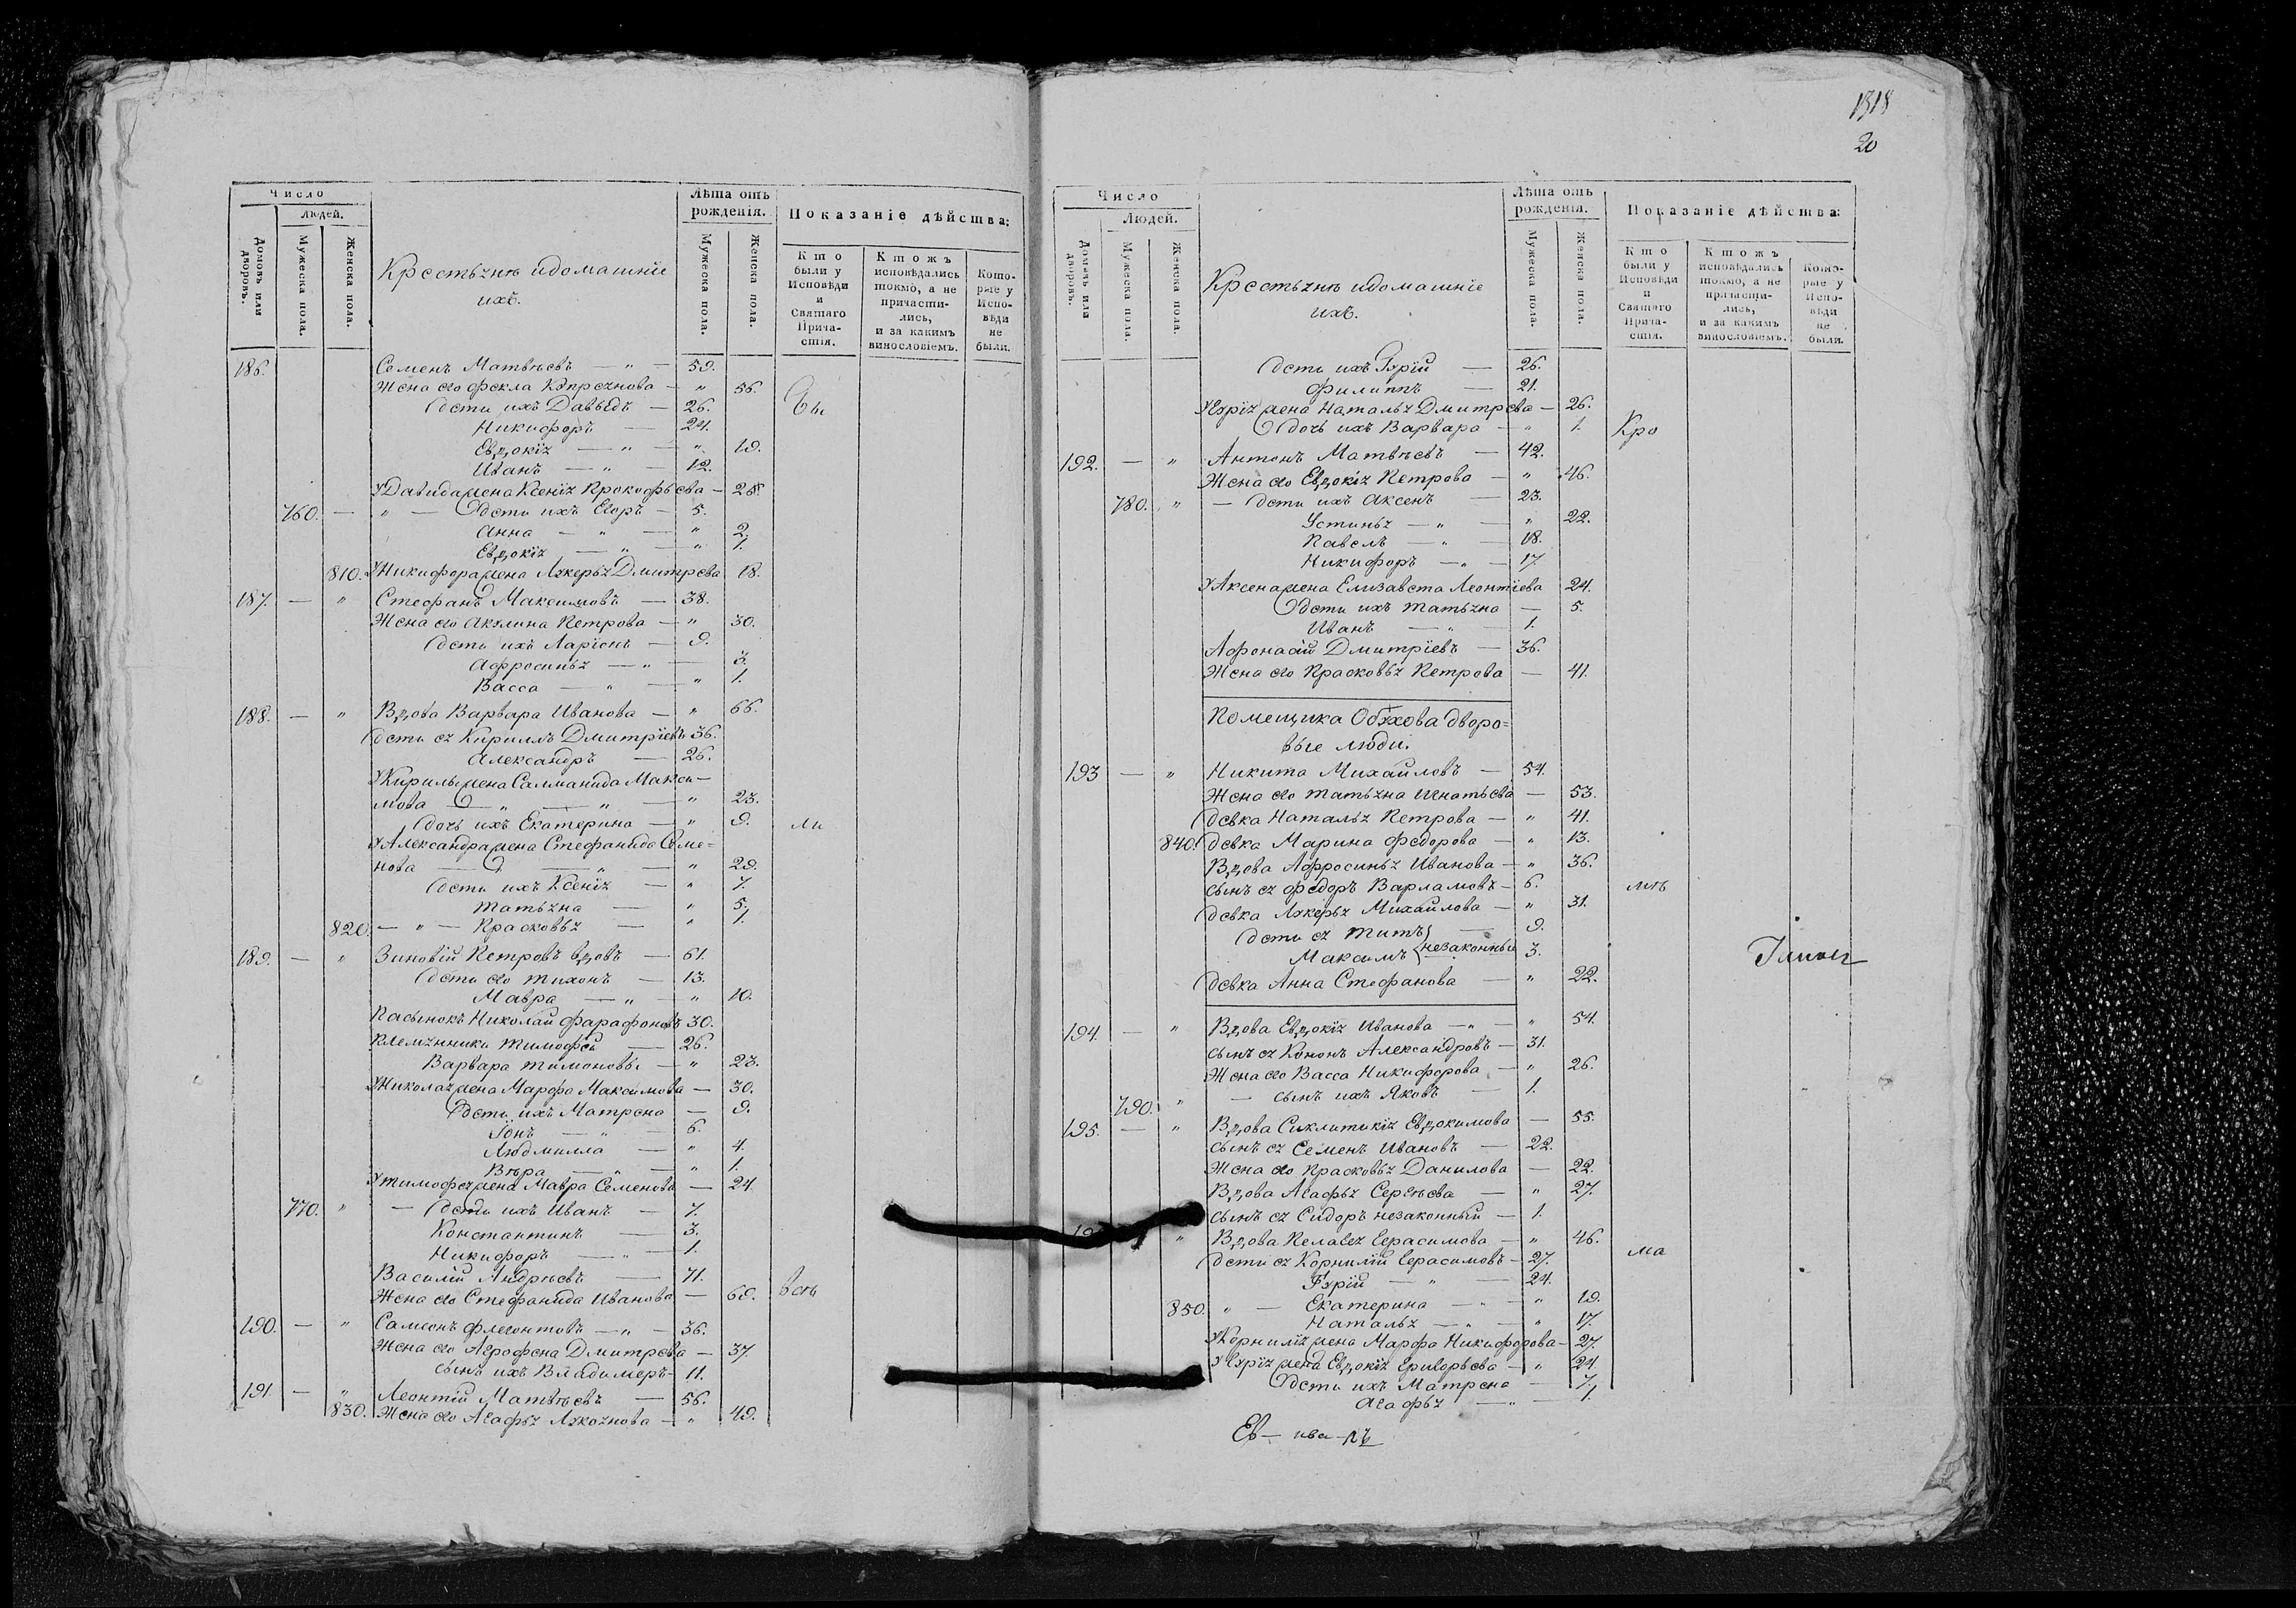 Число
Людей.
Домовъ или дворовъ.
Мужеска пола.
Женска пола.
Крестьяне идомашніе
ихъ.
Лѣта отъ рожденія.
Мужеска пола.
Женска пола.
Показаніе дѣйства:
Кто были у Исповѣди и Святаго Прича-стія.
Ктожъ исповѣдались токмо, а не причасти-лись, и за какимъ винословіемъ.
Кото-рые у Испо-вѣди не были.
186. Семенъ Матвѣевъ — " — 59.
Жена его Фекла Купреянова — " 56.
дети ихъ Давыдъ — 26. бы
Никифоръ — 24.
Евдокія — " — " 19.
Иванъ — " — 12.
УДавида жена Ксенія Прокофьева — 28.
760. — " — дети ихъ Егоръ — 5.
Анна — " — " 2.
Евдокія — " — " 1.
810. УНикифора жена Лукерья Дмитрева 18.
187. — " Стефанъ Максимовъ — 38.
Жена его Акулина Петрова — " 30.
дети ихъ Ларіонъ — 9.
Афросинья — " — 3.
Васса — " — " 1.
188. — " Вдова Варвара Иванова — " 66.
дети ея Кириллъ Дмитріевъ 36.
Александръ — 26.
УКирилы жена Салманида Макси-
мова — " — " — " 23.
дочь ихъ Екатерина — " 9. ли
УАлександра жена Стефанида Семе=
нова — " — " 29.
дети ихъ Ксенія — " 7.
Татьяна — " 5.
820. — " — Прасковья — " 1.
189. — " Зиновій Петровъ вдовъ — 61.
дети его Тихонъ — 13.
Мавра — " — " 10.
Пасынокъ Николай Фарафоновъ 30.
Племянники Тимофей — 26.
Варвара Тимоновы — " 23.
УНиколая жена Марфа Максимова — 30.
дети ихъ Матрена — 9.
Іонъ — " — 6.
Людмилла — " 4.
Вѣра — " — " 1.
УТимофея жена Мавра Семенова — 24
770. " — дети ихъ Иванъ — 7.
Константинъ — 3.
Никифоръ — " — 1.
Василій Андрѣевъ — 71.
Жена его Стефанида Иванова — 69. всѣ
190. — " Самсонъ Флегонтовъ — " — 36.
Жена его Агрофена Дмитрева — 37
сынъ ихъ Владимеръ — 11.
191. — " Леонтій Матвѣевъ — 56.
830. Жена его Агафья Лукоянова — " 49.
1318
20
Число
Людей.
Домовъ или дворовъ.
Мужеска пола.
Женска пола.
Крестьяне идомашніе
ихъ.
Лѣта отъ рожденія.
Мужеска пола.
Женска пола.
Показаніе дѣйства:
Кто были у Исповѣди и Святаго Прича-стія.
Ктожъ исповѣдались токмо, а не причасти-лись, и за какимъ винословіемъ.
Кото-рые у Испо-вѣди не были.
дети ихъ Гурій — 26.
Филиппъ — 21.
УГурія жена Наталья Дмитрева — 26.
дочь ихъ Варвара — " 1. Кро
192. — " Антонъ Матвѣевъ — 42.
Жена его Евдокія Петрова — " 46.
780. " — дети ихъ Аксенъ — 23.
Устинья — " — " 22.
Павелъ — " — 18.
Никифоръ — " — 17.
УАксена жена Елизавета Леонтіева 24.
дети ихъ Татьяна — 5.
Иванъ — " — 1.
Афонасій Дмитріевъ — 36.
Жена его Прасковья Петрова — 41.
Помещика Обухова дворо=
вые люди.
193 — " Никита Михайловъ — 54.
Жена его Татьяна Игнатьева — 53.
девка Наталья Петрова — " 41.
840. девка Марина Федорова — " 13.
Вдова Афросинья Иванова — " 36.
сынъ ея Федоръ Варламовъ — 6. мѣ
девка Лукерья Михайлова — " 31.
дети ея Титъ — 9.
Максимъ незаконные 3.
девка Анна Стефанова — " 22.
194. — " Вдова Евдокія Иванова — " — " 54.
сынъ ея Кононъ Александровъ — 31.
Жена его Васса Никифорова — " 26.
790. " — сынъ ихъ Яковъ — 1.
195. — " Вдова Сиклитикія Евдокимова — 55.
сынъ ея Семенъ Ивановъ — 22.
Жена его Прасковья Данилова — 22.
Вдова Агафья Сергѣева — " 27.
сынъ ея Сидоръ незаконный — 1.
" Вдова Пелагея Герасимова — " 46.
дети ея Корнилій Герасимовъ — 27. ма
Гурій — " — 24.
850. " — Екатерина — " — " 19.
Наталья — " — " 17.
УКорнилія жена Марфа Никифорова — 27.
УГурія жена Евдокія Григорьева — " 24.
дети ихъ Матрена — 7.
Агафья — " — 1.